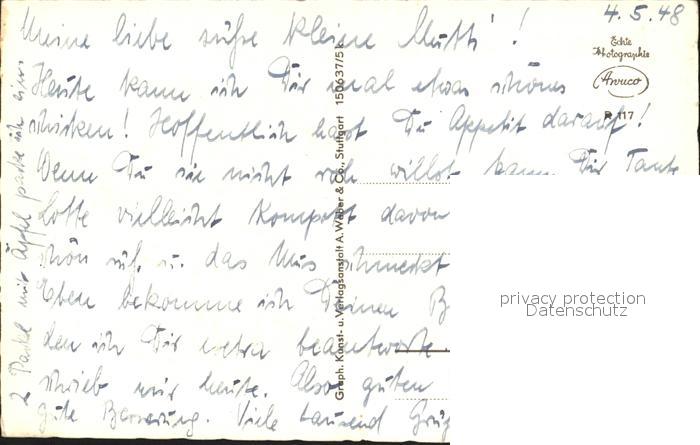 4. 5. 48
Meine liebe süße kleine Mutti!
Heute kann ich Dir mal etwas schönes
schicken! Hoffentlich hast Du Appetit darauf!
Wenn Du sie nicht roh willst kann Dir Tante
Lotte vielleicht Kompott davon
schön süß, u. das Mus schmeckt
Eben bekomme ich Deinen B
den ich Dir extra beantworte
schrieb mir heute. Also guten
gute Besserung. Viele tausend Grüß
2 Packl mit Äpfel packe ich eins
Echte
Photographie
Arwico
P 117
Graph. Kunst- u. Verlagsanstalt A. Weber & Co., Stuttgart 150637/5 k
privacy protection
Datenschutz